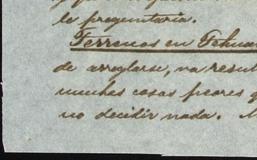 le preguntaria.
Terrenos en Tehua
de arreglarse, va resul
muchas cosas peores q
no decidir nada.